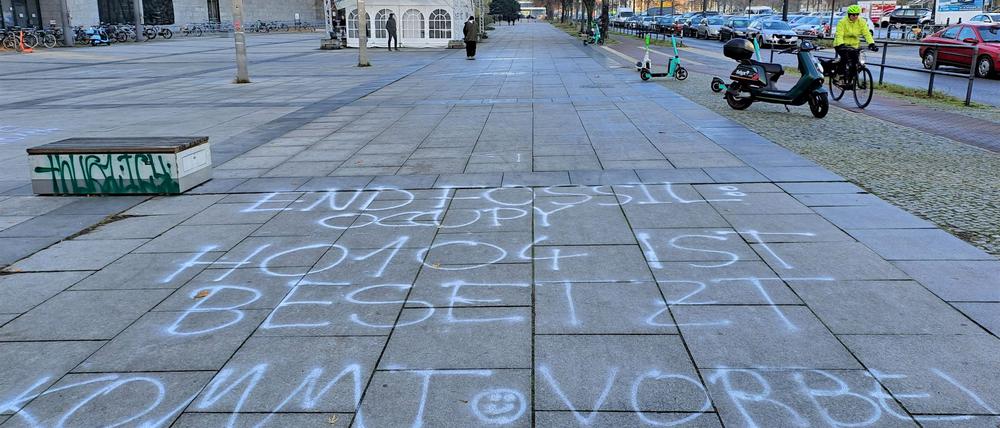 END FOSSIL:
OCCUPY
HO104 IST
BESETZT
KOMMT ☺ VORBEI